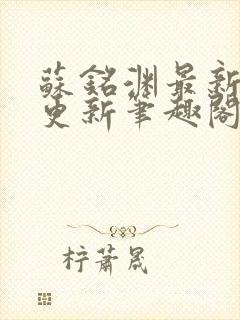 蘇銘淵最新
更新筆趣閣
柠蕭晟